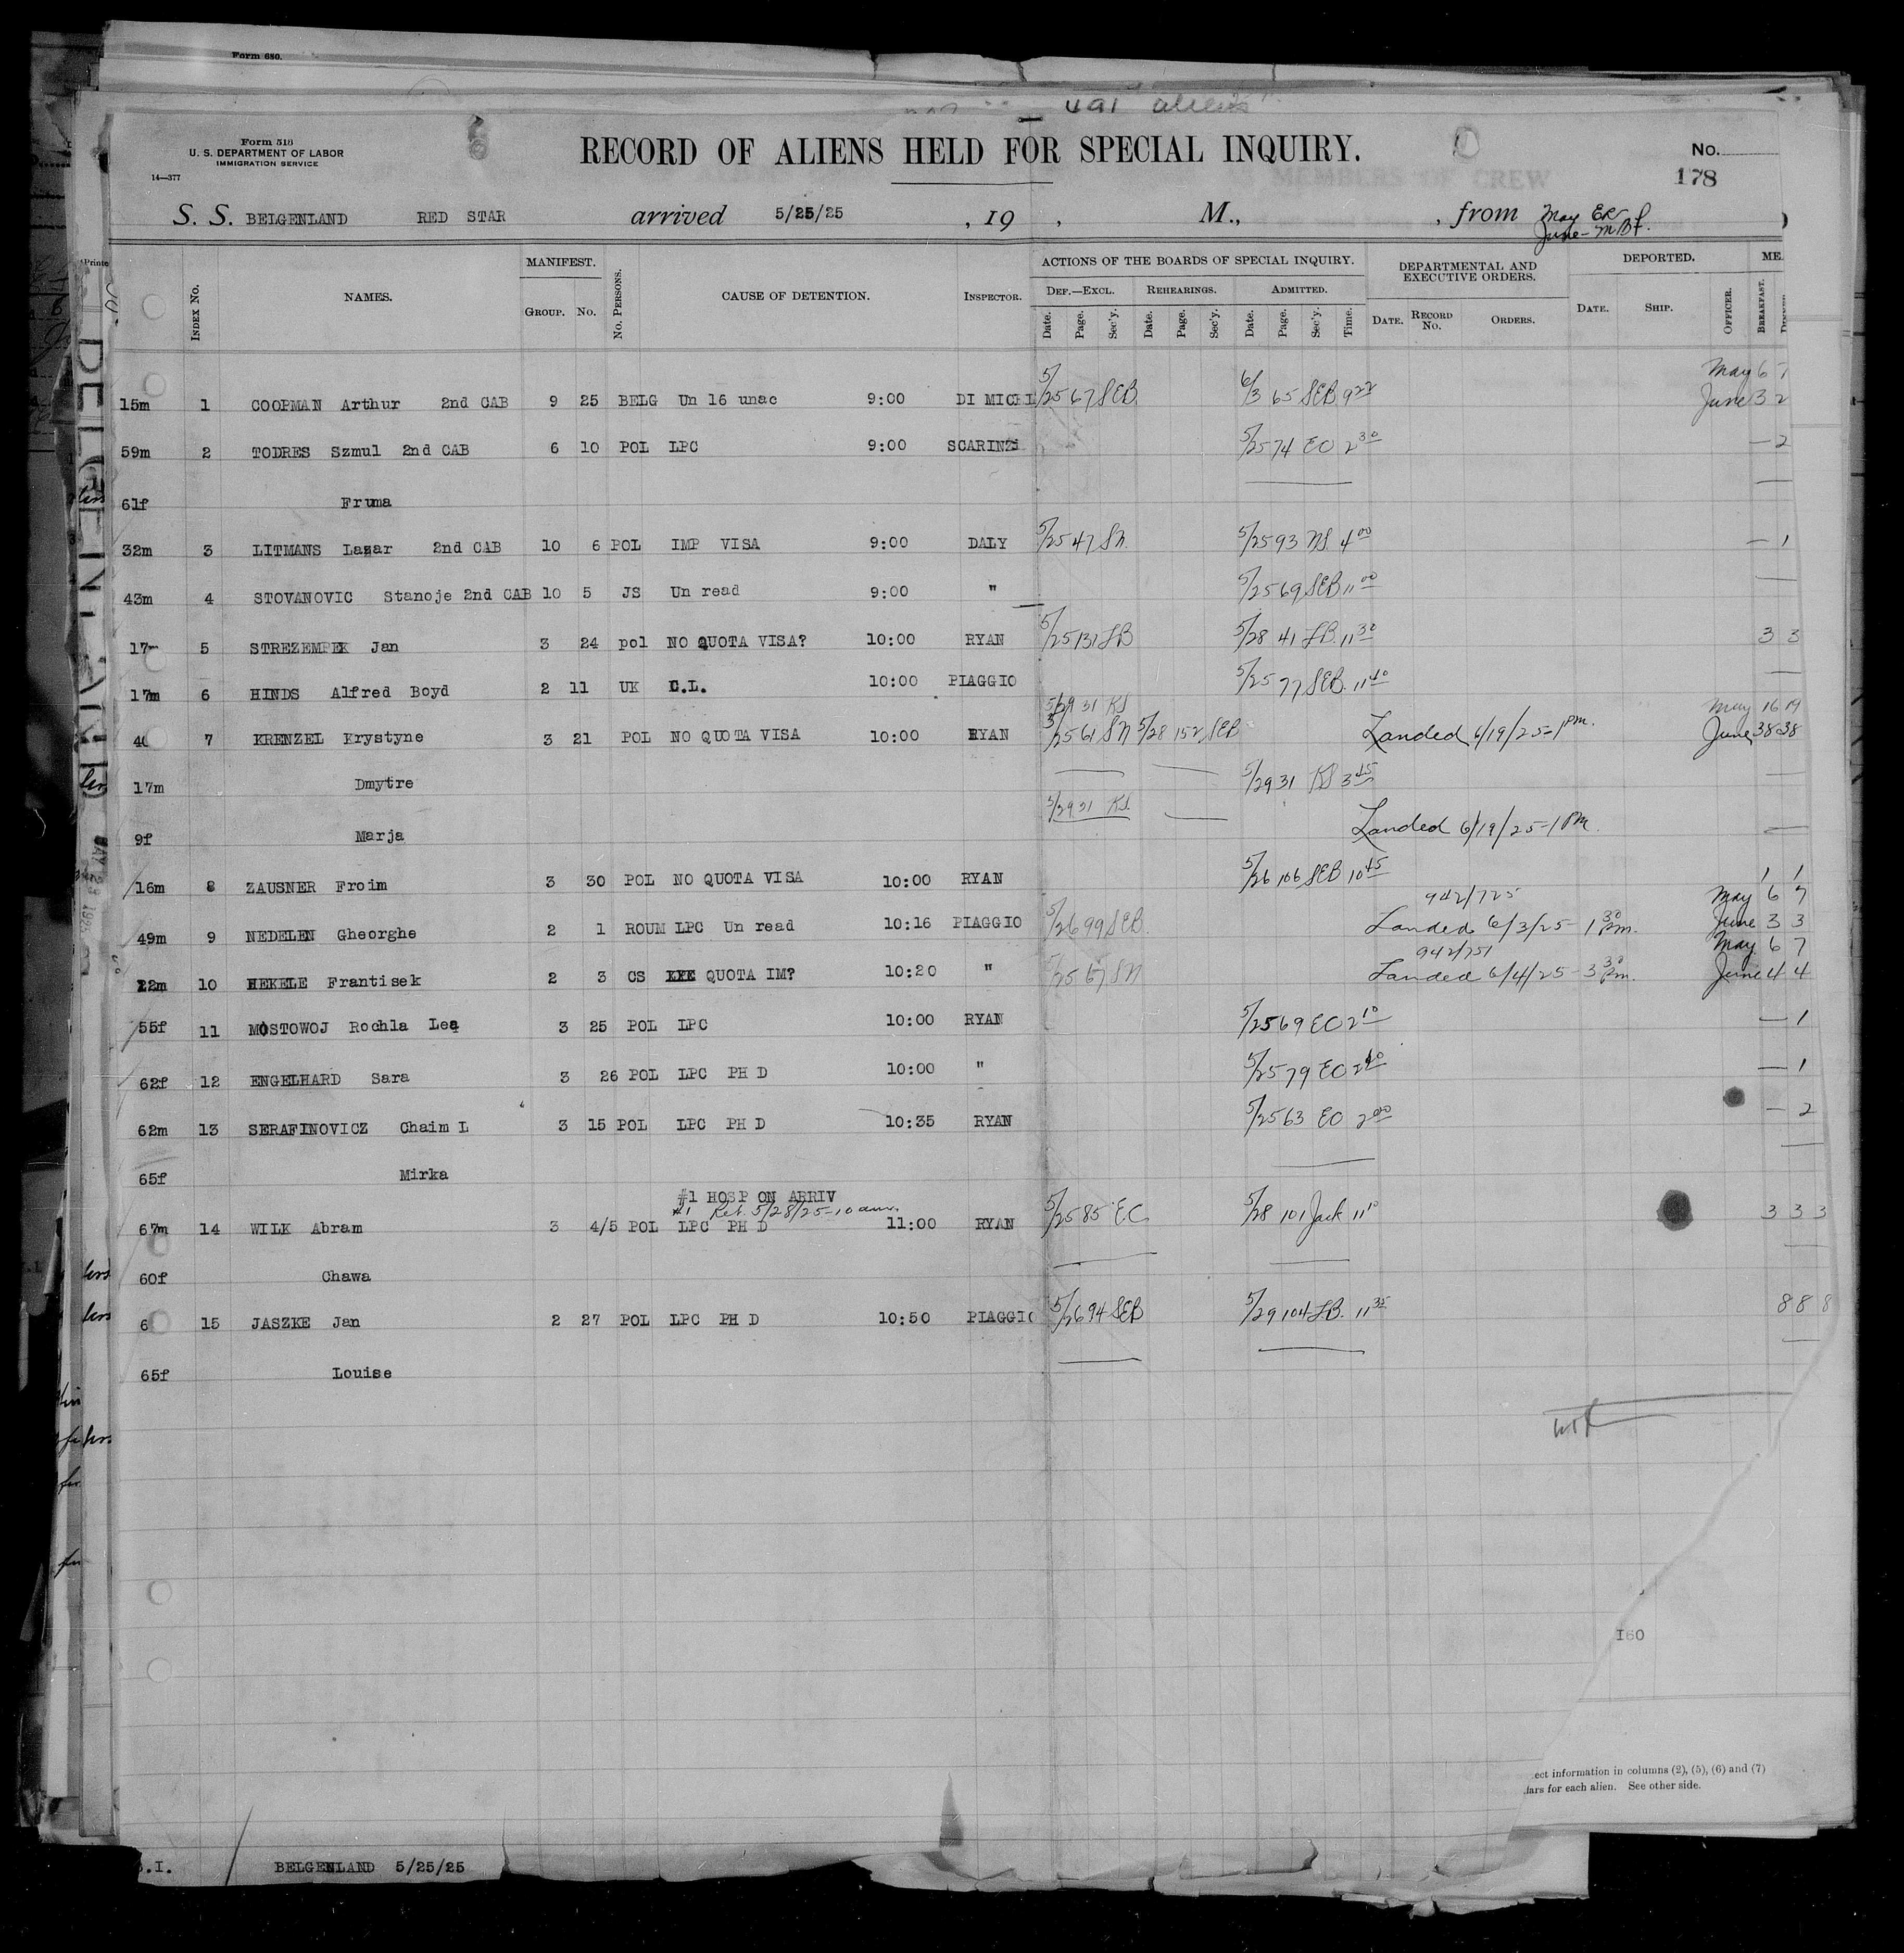 Form 680.
491 aliens
Form 518
U. S. DEPARTMENT OF LABOR
IMMIGRATION SERVICE
14—377
RECORD OF ALIENS HELD FOR SPECIAL INQUIRY.
No.
178
S. S. BELGENLAND RED STAR arrived 5/25/25 , 19 , M., , from May ER
June - MBf.
MANIFEST. ACTIONS OF THE BOARDS OF SPECIAL INQUIRY. DEPARTMENTAL AND EXECUTIVE ORDERS. DEPORTED. ME
INDEX No. NAMES. GROUP. No. No. PERSONS. CAUSE OF DETENTION. INSPECTOR. DEF.—EXCL. REHEARINGS. ADMITTED.
Date. Page. Sec'y. Date. Page. Sec'y. Date. Page. Sec'y. Time. DATE. RECORD No. ORDERS. DATE. SHIP. OFFICER. BREAKFAST.
May 6 7
15m 1 COOPMAN Arthur 2nd CAB 9 25 BELG Un 16 unac 9:00 DI MICHI 5/25 67 SEB 6/3 65 SEB 9 22 June 3 2
59m 2 TODRES Szmul 2nd CAB 6 10 POL LPC 9:00 SCARINZI 5/25 74 EO 2 30 — 2
61f Fruma
32m 3 LITMANS Lazar 2nd CAB 10 6 POL IMP VISA 9:00 DALY 5/25 47 SN 5/25 93 NS 4 00 — 1
43m 4 STOVANOVIC Stanoje 2nd CAB 10 5 JS Un read 9:00 " 5/25 69 SEB 11 00
17m 5 STREZEMPEK Jan 3 24 pol NO QUOTA VISA? 10:00 RYAN 5/25 131 LB 5/28 41 LB 11 30 3 3
17m 6 HINDS Alfred Boyd 2 11 UK C.L. 10:00 PIAGGIO 5/25 77 SEB 11 40
5/29 31 KS May 16 19
40 7 KRENZEL Krystyne 3 21 POL NO QUOTA VISA 10:00 RYAN 5/25 61 SN 5/28 152 SEB Landed 6/19/25-1 PM. June 38 38
17m Dmytre 5/29 31 KS 3 45
5/29 31 KS
9f Marja Landed 6/19/25-1 PM.
16m 8 ZAUSNER Froim 3 30 POL NO QUOTA VISA 10:00 RYAN 5/26 106 SEB 10 45 1 1
942/725 May 6 7
49m 9 NEDELEN Gheorghe 2 1 ROUM LPC Un read 10:16 PIAGGIO 5/26 99 SEB Landed 6/3/25-1 30 PM. June 3 3
942/751 May 6 7
22m 10 HEKELE Frantisek 2 3 CS QUOTA IM? 10:20 " 5/25 67 SN Landed 6/4/25-3 30 PM. June 4 4
55f 11 MOSTOWOJ Rochla Lea 3 25 POL LPC 10:00 RYAN 5/25 69 EO 2 10 — 1
62f 12 ENGELHARD Sara 3 26 POL LPC PH D 10:00 " 5/25 79 EO 2 40 — 1
62m 13 SERAFINOVICZ Chaim L 3 15 POL LPC PH D 10:35 RYAN 5/25 63 EO 2 00 — 2
65f Mirka
#1 HOSP ON ARRIV
#1 Ret. 5/28/25-10 am.
67m 14 WILK Abram 3 4/5 POL LPC PH D 11:00 RYAN 5/25 85 EC 5/28 101 Jack 11 10 3 3 3
60f Chawa
6 15 JASZKE Jan 2 27 POL LPC PH D 10:50 PIAGGIO 5/26 94 SEB 5/29 104 LB. 11 35 8 8 8
65f Louise
160
ect information in columns (2), (5), (6) and (7)
lars for each alien. See other side.
.I. BELGENLAND 5/25/25